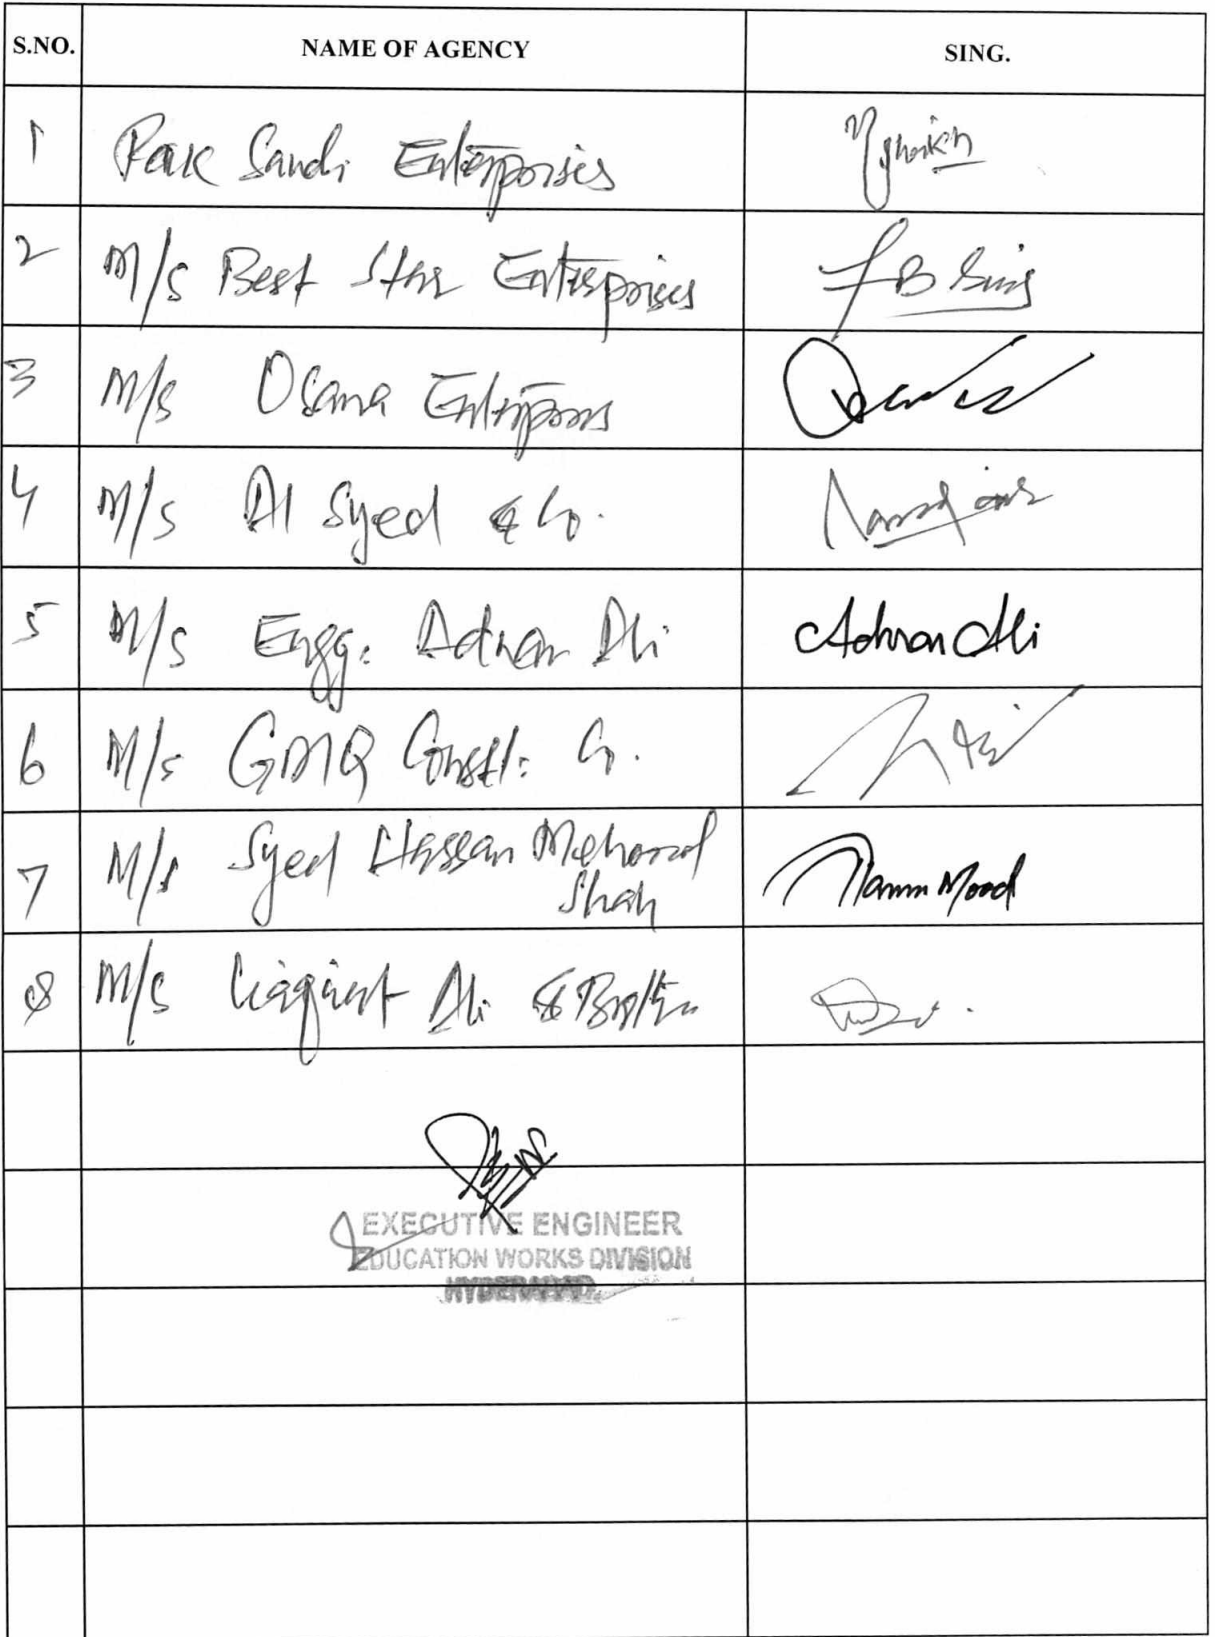 S.NO. NAME OF AGENCY SING.
1 Pak Saudi Enterprises
2 M/S Best Star Enterprises
3 M/S Osama Enterprises
4 M/S Al Syed & Co.
5 M/S Engg: Adnan Ali Adnan Ali
6 M/S GMQ Constt: Co.
7 M/S Syed Hassan Mehmood
Shah
8 M/S Liaquat Ali &
EXECUTIVE ENGINEER
EDUCATION WORKS DIVISION
HYDERABAD